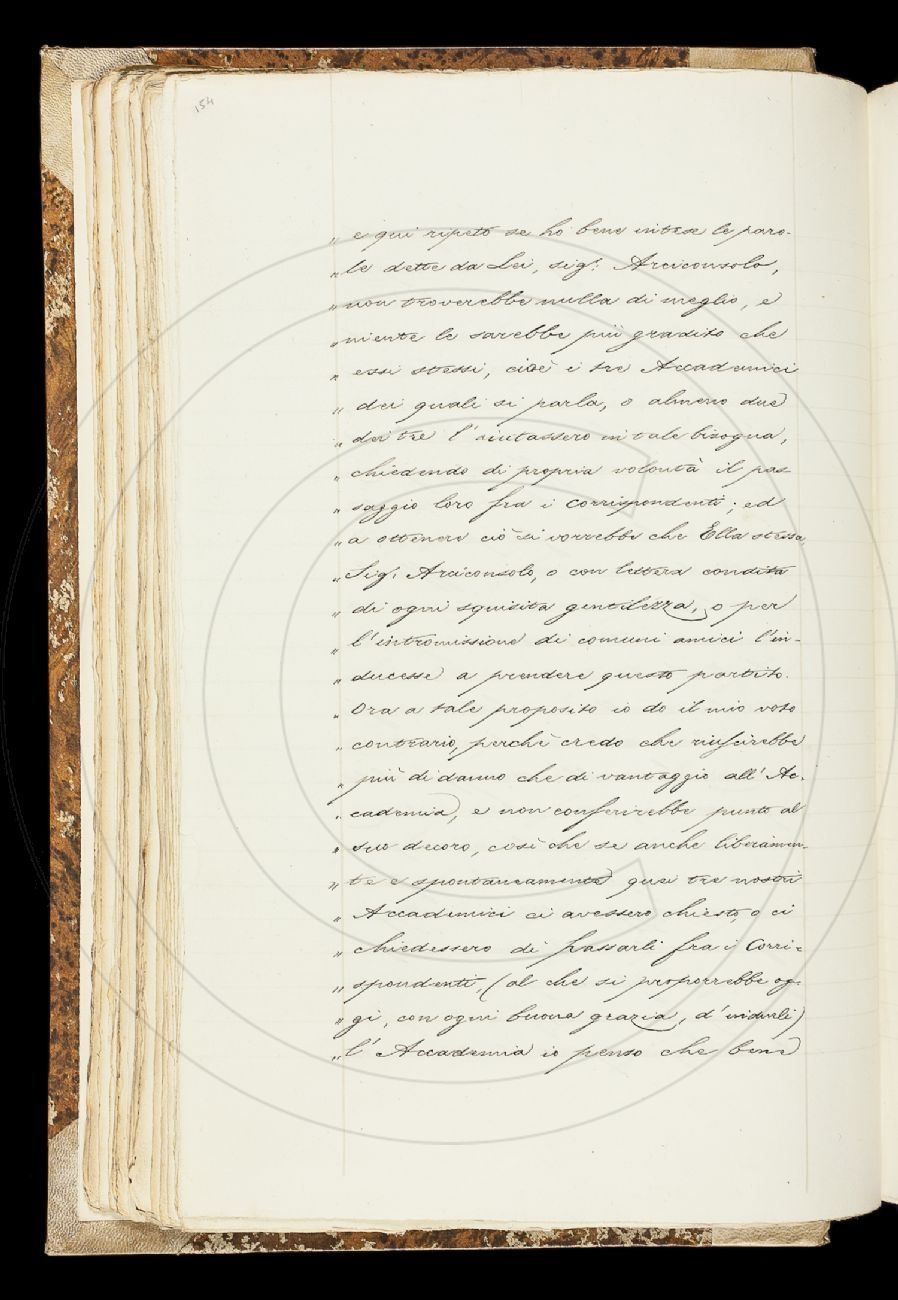 154
„ e qui ripeto se ho bene intese le paro-
„ le dette da Lei, sig.r Arciconsolo,
„ non troverebbe nulla di meglio, e
„ niente le sarebbe più gradito che
„ essi stessi, cioè i tre Accademici
„ dei quali si parla, o almeno due
„ dei tre l'aiutassero in tale bisogna,
„ chiedendo di propria volontà il pas-
„ saggio loro fra i corrispondenti; ed
„ a ottenere ciò si vorrebbe che Ella stessa,
„ Sig.r Arciconsolo, o con lettera condita
„ di ogni squisita gentilezza, o per
„ l'intromissione di comuni amici l'in-
„ ducesse a prendere questo partito.
„ Ora a tale proposito io do il mio voto
„ contrario, perchè credo che riuscirebbe
„ più di danno che di vantaggio all'Ac-
„ cademia, e non conferirebbe punto al
„ suo decoro, così che se anche liberamen-
„ te e spontaneamente quei tre nostri
„ Accademici ci avessero chiesto, o ci
„ chiedessero di passarli fra i Corri-
„ spondenti, (al che si proporrebbe og-
„ gi, con ogni buona grazia, d'indurli)
„ l'Accademia io penso che bene